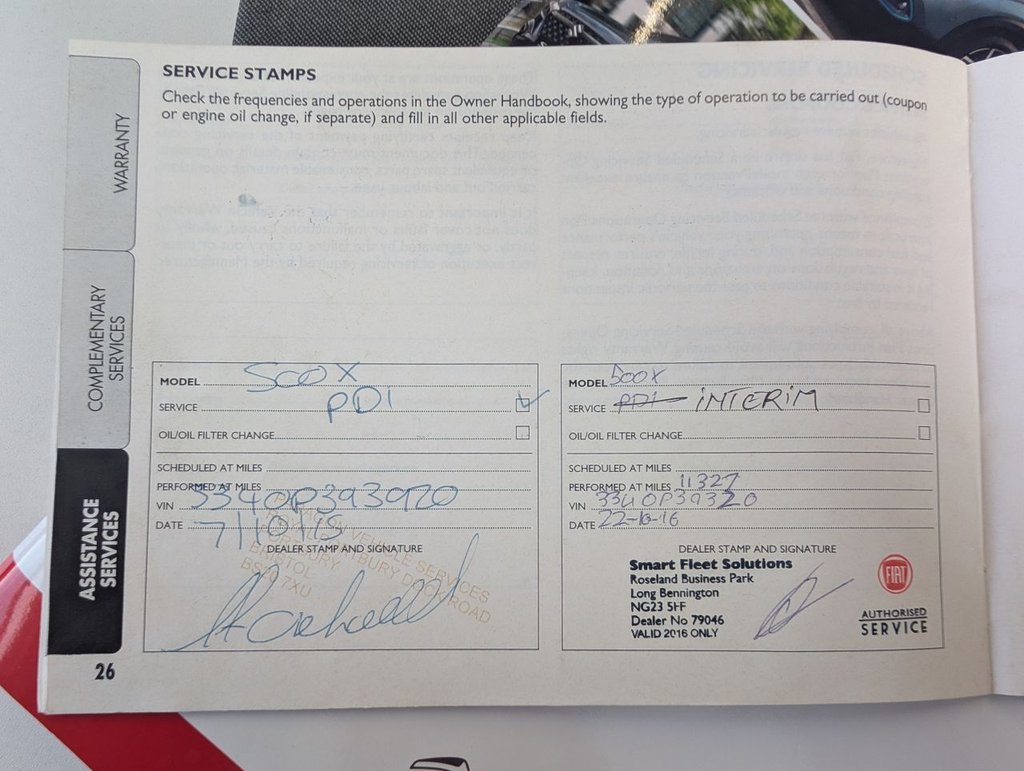 SERVICE STAMPS
Check the frequencies and operations in the Owner Handbook, showing the type of operation to be carried out (coupon
or engine oil change, if separate) and fill in all other applicable fields.
WARRANTY
COMPLEMENTARY
SERVICES
ASSISTANCE
SERVICES
MODEL 500X
SERVICE PDI
OIL/OIL FILTER CHANGE
SCHEDULED AT MILES
PERFORMED AT MILES
VIN 3340P393920
DATE 7/10/15
DEALER STAMP AND SIGNATURE
VEHICLE SERVICES
DOCK ROAD
BRISTOL
BS10 7XU
MODEL 500X
SERVICE PDI INTERIM
OIL/OIL FILTER CHANGE
SCHEDULED AT MILES
PERFORMED AT MILES 11327
VIN
DATE 22-10-16
DEALER STAMP AND SIGNATURE
Smart Fleet Solutions
Roseland Business Park
Long Bennington
NG23 5FF
Dealer No 79046
VALID 2016 ONLY
FIAT
AUTHORISED
SERVICE
26